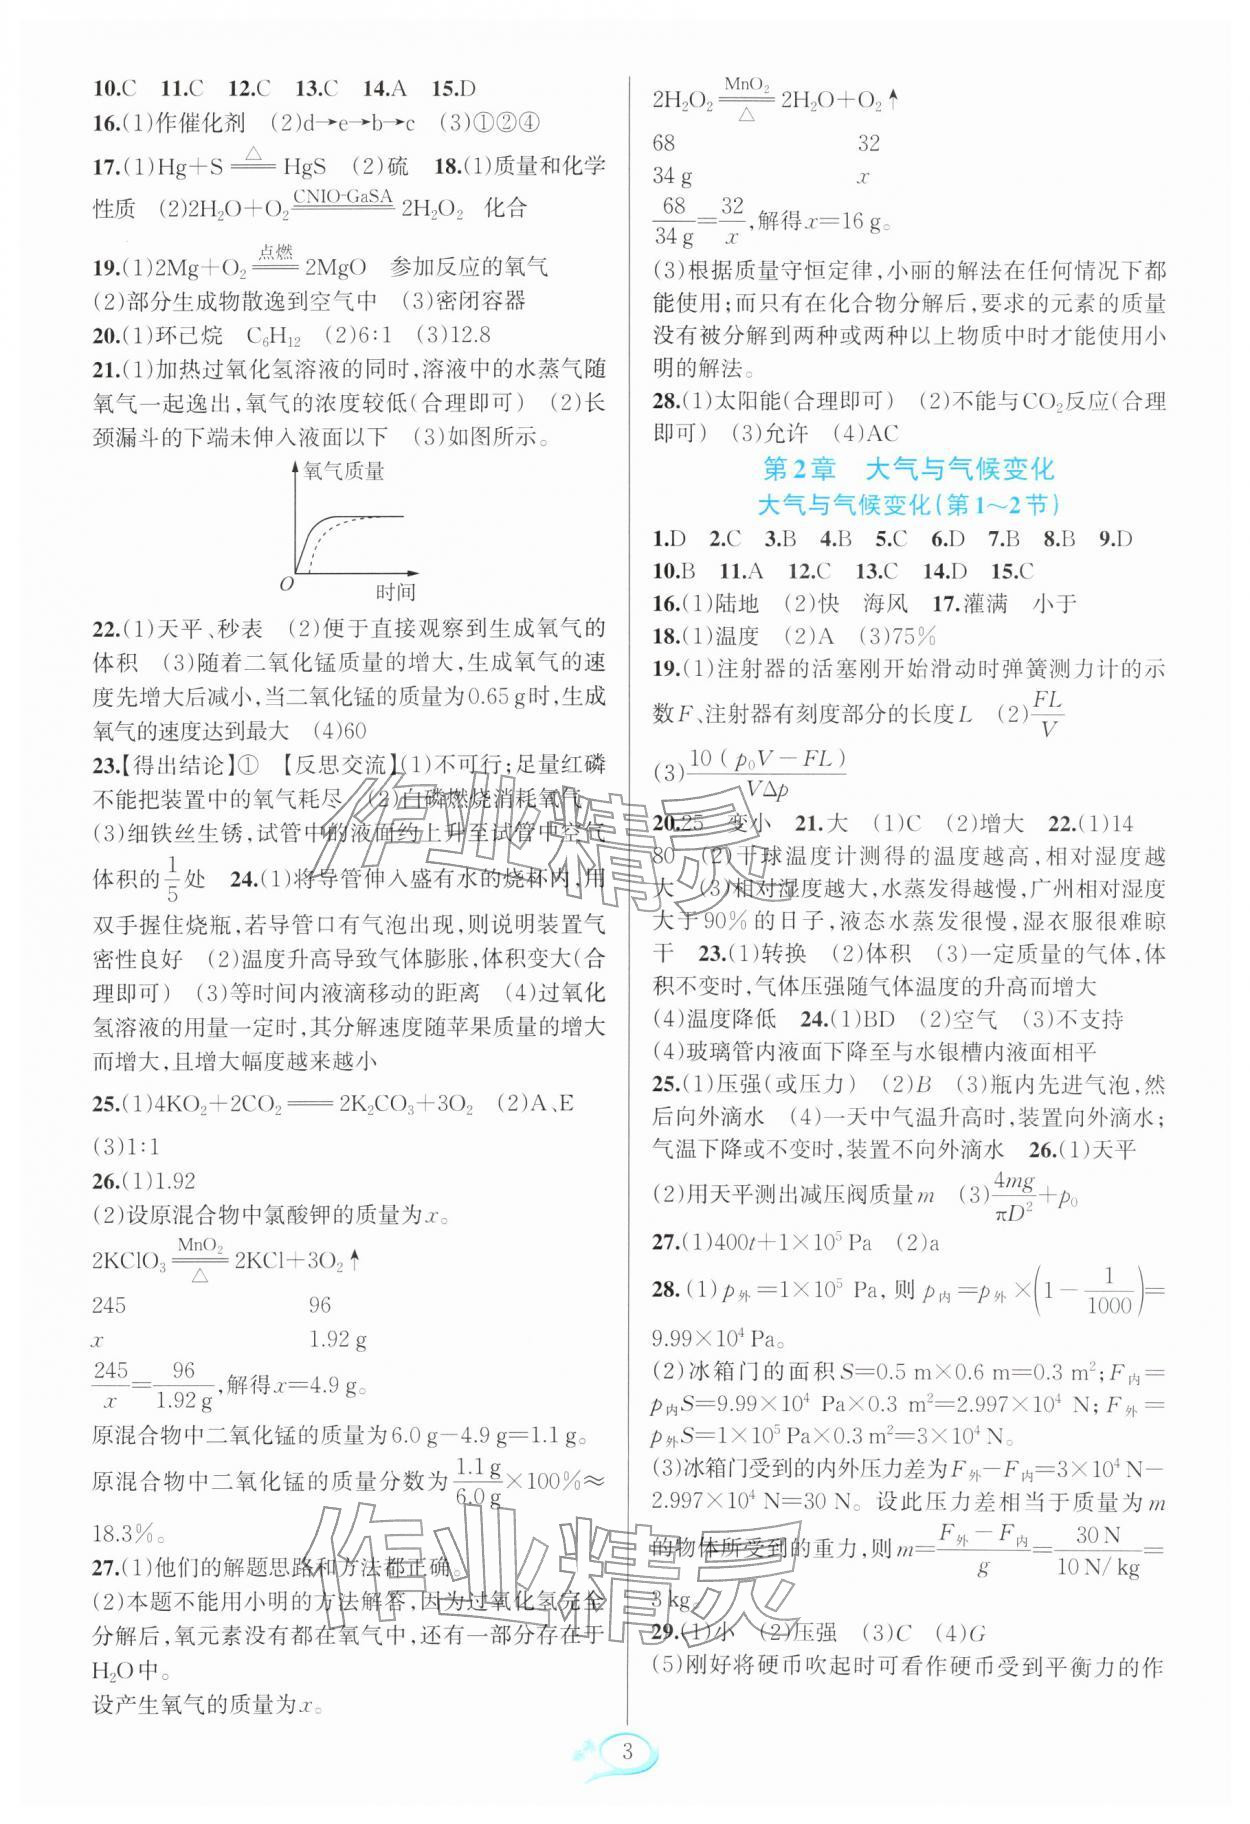 10.C 11.C 12.C 13.C 14.A 15.D
16.(1)作催化剂 (2)d→e→b→c (3)①②④
17.(1)Hg+S =△= HgS (2)硫 18.(1)质量和化学
性质 (2)2H₂O+O₂ =CNIO-GaSA= 2H₂O₂ 化合
19.(1)2Mg+O₂ =点燃= 2MgO 参加反应的氧气
(2)部分生成物散逸到空气中 (3)密闭容器
20.(1)环己烷 C₆H₁₂ (2)6∶1 (3)12.8
21.(1)加热过氧化氢溶液的同时,溶液中的水蒸气随
氧气一起逸出,氧气的浓度较低(合理即可) (2)长
颈漏斗的下端未伸入液面以下 (3)如图所示。
氧气质量
O 时间
22.(1)天平、秒表 (2)便于直接观察到生成氧气的
体积 (3)随着二氧化锰质量的增大,生成氧气的速
度先增大后减小,当二氧化锰的质量为0.65 g时,生成
氧气的速度达到最大 (4)60
23.【得出结论】① 【反思交流】(1)不可行;足量红磷
不能把装置中的氧气耗尽 (2)白磷燃烧消耗氧气
(3)细铁丝生锈,试管中的液面约上升至试管中空气
体积的1/5处 24.(1)将导管伸入盛有水的烧杯内,用
双手握住烧瓶,若导管口有气泡出现,则说明装置气
密性良好 (2)温度升高导致气体膨胀,体积变大(合
理即可) (3)等时间内液滴移动的距离 (4)过氧化
氢溶液的用量一定时,其分解速度随苹果质量的增大
而增大,且增大幅度越来越小
25.(1)4KO₂+2CO₂══2K₂CO₃+3O₂ (2)A、E
(3)1∶1
26.(1)1.92
(2)设原混合物中氯酸钾的质量为x。
2KClO₃ =MnO₂/△= 2KCl+3O₂↑
245 96
x 1.92 g
245/x=96/1.92 g,解得x=4.9 g。
原混合物中二氧化锰的质量为6.0 g−4.9 g=1.1 g。
原混合物中二氧化锰的质量分数为1.1 g/6.0 g×100%≈
18.3%。
27.(1)他们的解题思路和方法都正确。
(2)本题不能用小明的方法解答,因为过氧化氢完全
分解后,氧元素没有都在氧气中,还有一部分存在于
H₂O中。
设产生氧气的质量为x。
2H₂O₂ =MnO₂/△= 2H₂O+O₂↑
68 32
34 g x
68/34 g=32/x,解得x=16 g。
(3)根据质量守恒定律,小丽的解法在任何情况下都
能使用;而只有在化合物分解后,要求的元素的质量
没有被分解到两种或两种以上物质中时才能使用小
明的解法。
28.(1)太阳能(合理即可) (2)不能与CO₂反应(合理
即可) (3)允许 (4)AC
第2章 大气与气候变化
大气与气候变化(第1～2节)
1.D 2.C 3.B 4.B 5.C 6.D 7.B 8.B 9.D
10.B 11.A 12.C 13.C 14.D 15.C
16.(1)陆地 (2)快 海风 17.灌满 小于
18.(1)温度 (2)A (3)75%
19.(1)注射器的活塞刚开始滑动时弹簧测力计的示
数F、注射器有刻度部分的长度L (2)FL/V
(3)10(p₀V−FL)/VΔp
20.25 变小 21.大 (1)C (2)增大 22.(1)14
80 (2)干球温度计测得的温度越高,相对湿度越
大 (3)相对湿度越大,水蒸发得越慢,广州相对湿度
大于90%的日子,液态水蒸发很慢,湿衣服很难晾
干 23.(1)转换 (2)体积 (3)一定质量的气体,体
积不变时,气体压强随气体温度的升高而增大
(4)温度降低 24.(1)BD (2)空气 (3)不支持
(4)玻璃管内液面下降至与水银槽内液面相平
25.(1)压强(或压力) (2)B (3)瓶内先进气泡,然
后向外滴水 (4)一天中气温升高时,装置向外滴水;
气温下降或不变时,装置不向外滴水 26.(1)天平
(2)用天平测出减压阀质量m (3)4mg/πD²+p₀
27.(1)400t+1×10⁵ Pa (2)a
28.(1)p外=1×10⁵ Pa,则p内=p外×(1−1/1000)=
9.99×10⁴ Pa。
(2)冰箱门的面积S=0.5 m×0.6 m=0.3 m²;F内=
p内S=9.99×10⁴ Pa×0.3 m²=2.997×10⁴ N;F外=
p外S=1×10⁵ Pa×0.3 m²=3×10⁴ N。
(3)冰箱门受到的内外压力差为F外−F内=3×10⁴ N−
2.997×10⁴ N=30 N。设此压力差相当于质量为m
的物体所受到的重力,则m=F外−F内/g=30 N/10 N/kg=
3 kg。
29.(1)小 (2)压强 (3)C (4)G
(5)刚好将硬币吹起时可看作硬币受到平衡力的作
3
作业精灵
作业精灵